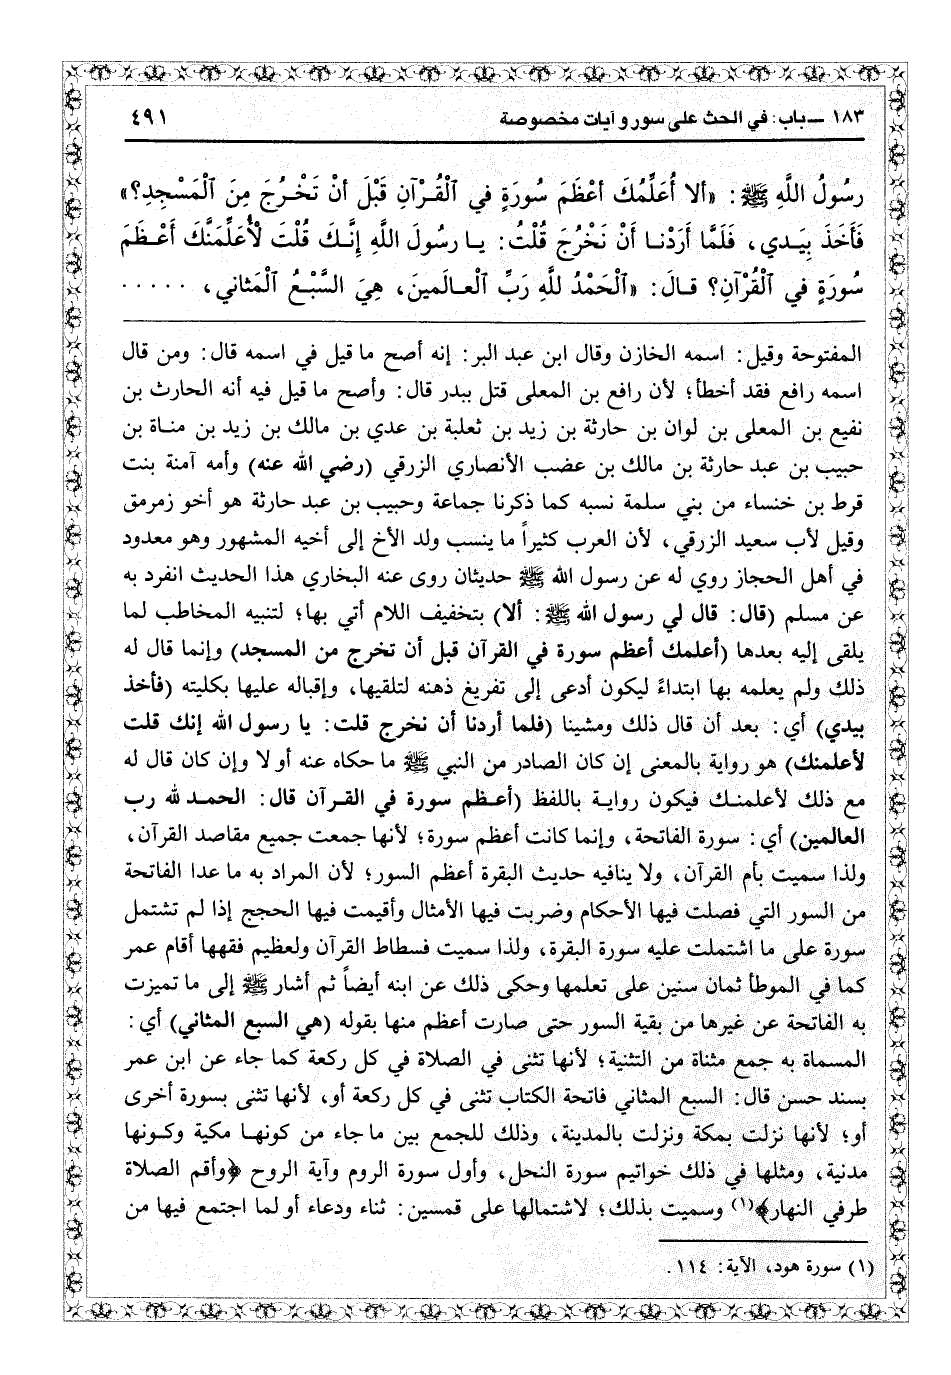 ١٨٣ ــ باب: في الحث على سور وآيات مخصوصة ٤٩١
رسُولُ اللَّهِ ﷺ: «ألا أُعَلِّمُكَ أعْظَمَ سُورَةٍ في ٱلْقُـرْآنِ قَبْلَ أنْ تَخْـرُجَ مِنَ ٱلْمَسْجِدِ؟»
فَأخَذَ بِيَـدي، فَلَمَّا أرَدْنـا أنْ نَخْرُجَ قُلْتُ: يـا رسُولَ اللَّهِ إنَّـكَ قُلْتَ لأُعَلِّمَنَّكَ أعْـظَمَ
سُورَةٍ في ٱلْقُرْآنِ؟ قـالَ: «ٱلْحَمْدُ للَّهِ رَبِّ ٱلْعـالَمينَ، هِيَ السَّبْـعُ ٱلْمَثاني، .....
المفتوحة وقيل: اسمه الخازن وقال ابن عبد البر: إنه أصح ما قيل في اسمه قال: ومن قال
اسمه رافع فقد أخطأ؛ لأن رافع بن المعلى قتل ببدر قال: وأصح ما قيل فيه أنه الحارث بن
نفيع بن المعلى بن لوان بن حارثة بن زيد بن ثعلبة بن عدي بن مالك بن زيد بن منـاة بن
حبيب بن عبد حارثة بن مالك بن عضب الأنصاري الزرقي (رضي الله عنه) وأمه آمنة بنت
قرط بن خنساء من بني سلمة نسبه كما ذكرنا جماعة وحبيب بن عبد حارثة هو أخو زمرمق
وقيل لأب سعيد الزرقي، لأن العرب كثيراً ما ينسب ولد الأخ إلى أخيه المشهور وهو معدود
في أهل الحجاز روي له عن رسول الله ﷺ حديثان روى عنه البخاري هذا الحديث انفرد به
عن مسلم (قال: قال لي رسول الله ﷺ: ألا) بتخفيف اللام أتي بها؛ لتنبيه المخاطب لما
يلقى إليه بعدها (أعلمك أعظم سورة في القرآن قبل أن تخرج من المسجد) وإنما قال له
ذلك ولم يعلمه بها ابتداءً ليكون أدعى إلى تفريغ ذهنه لتلقيها، وإقباله عليها بكليته (فأخذ
بيدي) أي: بعد أن قال ذلك ومشينا (فلما أردنا أن نخرج قلت: يا رسول الله إنك قلت
لأعلمنك) هو رواية بالمعنى إن كان الصادر من النبي ﷺ ما حكاه عنه أو لا وإن كان قال له
مع ذلك لأعلمنـك فيكون روايـة باللفظ (أعـظم سورة في القـرآن قال: الحمـد لله رب
العالمين) أي: سورة الفاتحة، وإنما كانت أعظم سورة؛ لأنها جمعت جميع مقاصد القرآن،
ولذا سميت بأم القرآن، ولا ينافيه حديث البقرة أعظم السور؛ لأن المراد به ما عدا الفاتحة
من السور التي فصلت فيها الأحكام وضربت فيها الأمثال وأقيمت فيها الحجج إذا لم تشتمل
سورة على ما اشتملت عليه سورة البقرة، ولذا سميت فسطاط القرآن ولعظيم فقهها أقام عمر
كما في الموطأ ثمان سنين على تعلمها وحكى ذلك عن ابنه أيضاً ثم أشار ﷺ إلى ما تميزت
به الفاتحة عن غيرها من بقية السور حتى صارت أعظم منها بقوله (هي السبع المثاني) أي:
المسماة به جمع مثناة من التثنية؛ لأنها تثنى في الصلاة في كل ركعة كما جاء عن ابن عمر
بسند حسن قال: السبع المثاني فاتحة الكتاب تثنى في كل ركعة أو، لأنها تثنى بسورة أخرى
أو؛ لأنها نزلت بمكة ونزلت بالمدينة، وذلك للجمع بين ما جاء من كونهـا مكية وكـونها
مدنية، ومثلها في ذلك خواتيم سورة النحل، وأول سورة الروم وآية الروح ﴿وأقم الصلاة
طرفي النهار﴾(١) وسميت بذلك؛ لاشتمالها على قمسين: ثناء ودعاء أو لما اجتمع فيها من
(١) سورة هود، الآية: ١١٤.